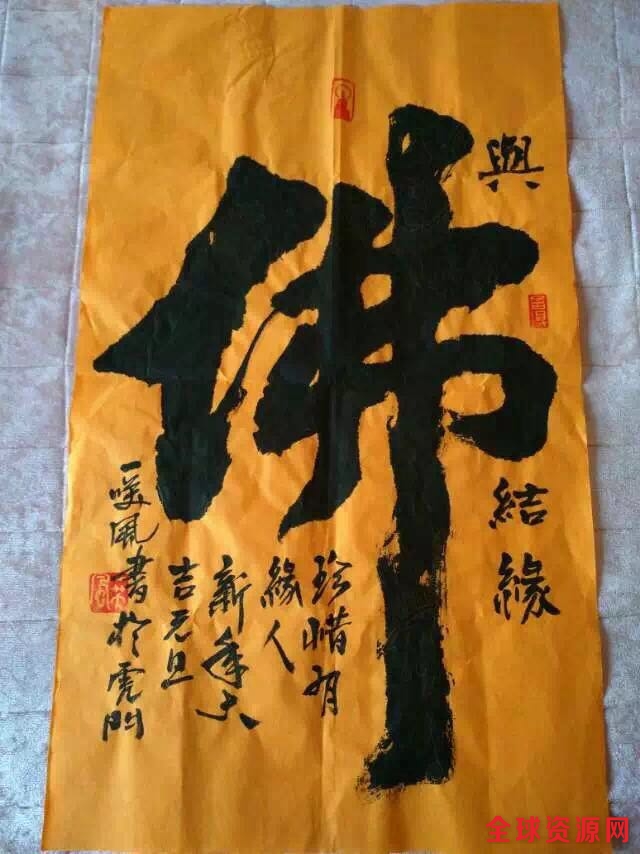 與
佛
結緣
珍惜有
緣人
新年大
吉元旦
一風書於虎門
全球资源网